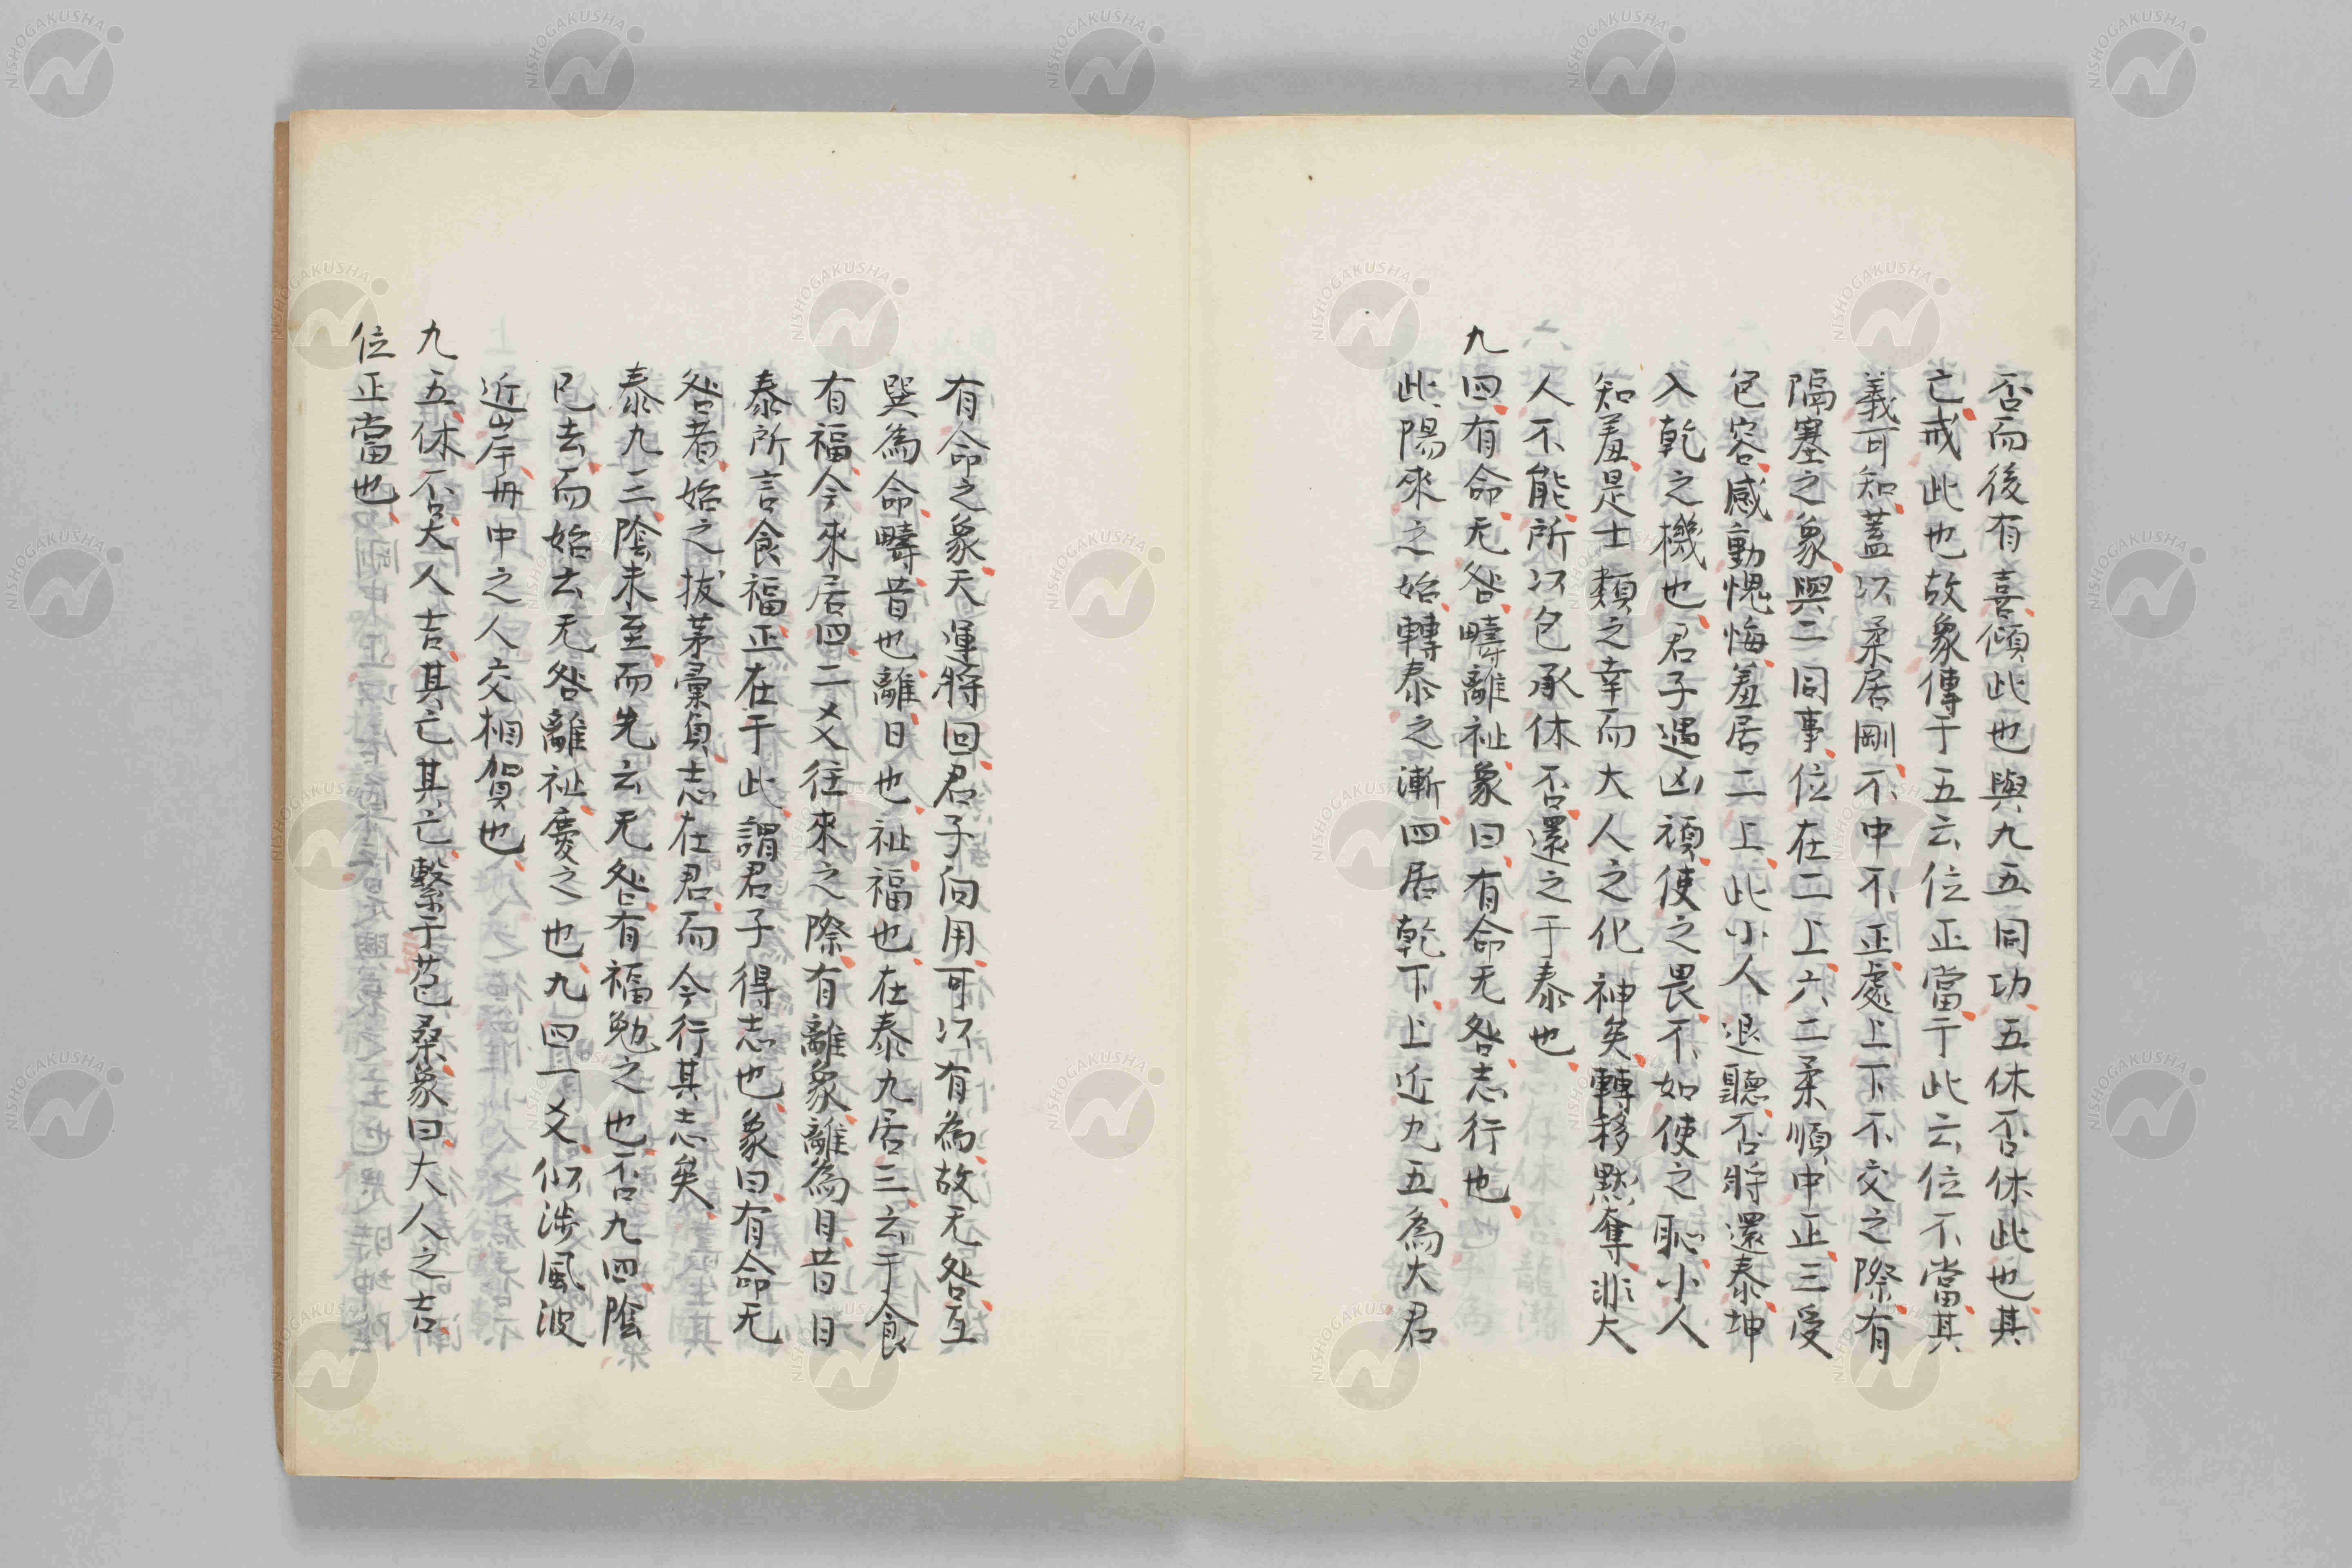 否而後有喜傾此也與九五同功五休否休此也其
亡戒此也故象傳于五云位正當于此云位不當其
義可知蓋以柔居剛不中不正處上下不交之際有
隔塞之象與二同事位在二上六二柔順中正三受
包容感動愧悔羞居二上此小人退聽否將還泰坤
入乾之機也君子遇凶頑使之畏不如使之恥小人
知羞是士類之幸而大人之化神矣轉移默奪非大
人不能所以包承休否還之于泰也
九四有命无咎疇離祉象曰有命无咎志行也
此陽來之始轉泰之漸四居乾下上近九五為大君
有命之象天運將回君子向用可以有為故无咎互
巽為命疇昔也離日也祉福也在泰九居三云于食
有福今來居四二爻往來之際有離象離為日昔日
泰所言食福正在于此謂君子得志也象曰有命无
咎者始之拔茅彙貞志在君而今行其志矣
泰九三陰未至而先云无咎有福勉之也否九四陰
已去而始云无咎離祉慶之也九四一爻似涉風波
近岸舟中之人交相賀也
九五休不否大人吉其亡其亡繫于苞桑象曰大人之吉
位正當也
NISHOGAKUSHA